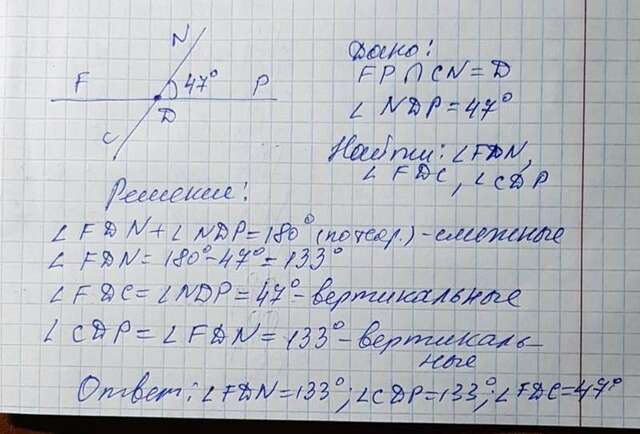 N
F 47° P
D
C
Дано:
FP∩CN=D
∠NDP=47°
Найти: ∠FDN,
∠FDC, ∠CDP
Решение:
∠FDN+∠NDP=180° (по теор.)-смежные
∠FDN=180°-47°=133°
∠FDC=∠NDP=47°-вертикальные
∠CDP=∠FDN=133°-вертикаль-
ные
Ответ: ∠FDN=133°; ∠CDP=133°; ∠FDC=47°